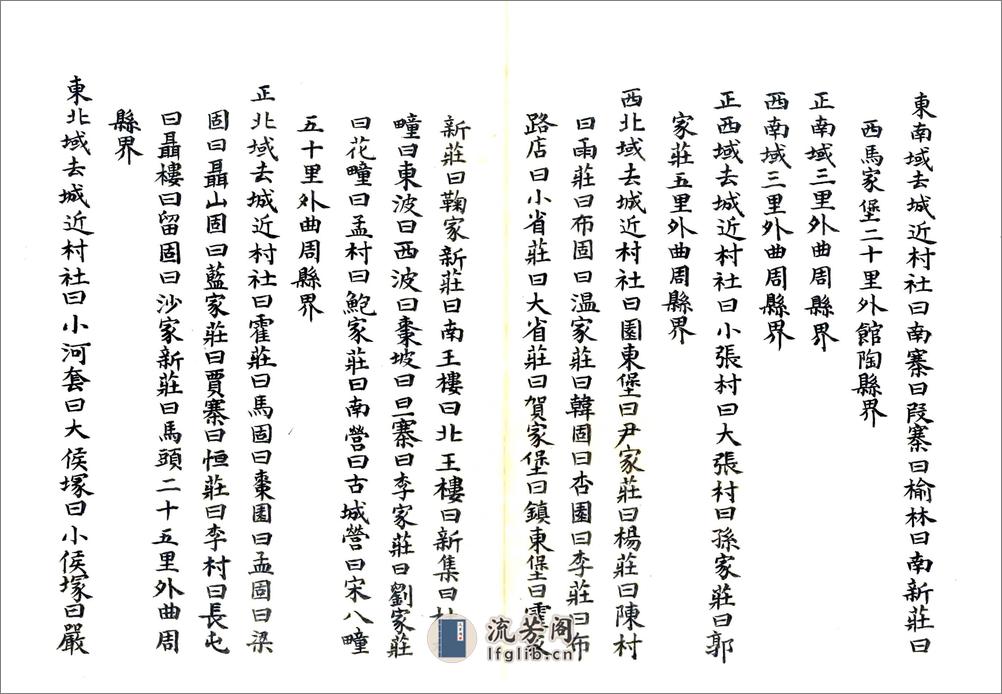 東南域去城近村社曰南寨曰段寨曰榆林曰南新莊曰
西馬家堡二十里外館陶縣界
正南域三里外曲周縣界
西南域三里外曲周縣界
正西域去城近村社曰小張村曰大張村曰孫家莊曰郭
家莊五里外曲周縣界
西北域去城近村社曰園東堡曰尹家莊曰楊莊曰陳村
曰雨莊曰布固曰温家莊曰韓固曰杏園曰李莊曰布
路店曰小省莊曰大省莊曰賀家堡曰鎮東堡曰
新莊曰鞠家新莊曰南王樓曰北王樓曰新集曰
疃曰東波曰西波曰棗坡曰旦寨曰李家莊曰劉家莊
曰花疃曰孟村曰鮑家莊曰南營曰古城營曰宋八疃
五十里外曲周縣界
正北域去城近村社曰霍莊曰馬固曰棗園曰孟固曰梁
固曰聶山固曰藍家莊曰賈寨曰恒莊曰李村曰長屯
曰聶樓曰留固曰沙家新莊曰馬頭二十五里外曲周
縣界
東北域去城近村社曰小河套曰大侯塚曰小侯塚曰嚴
流芳阁
lfglib.cn